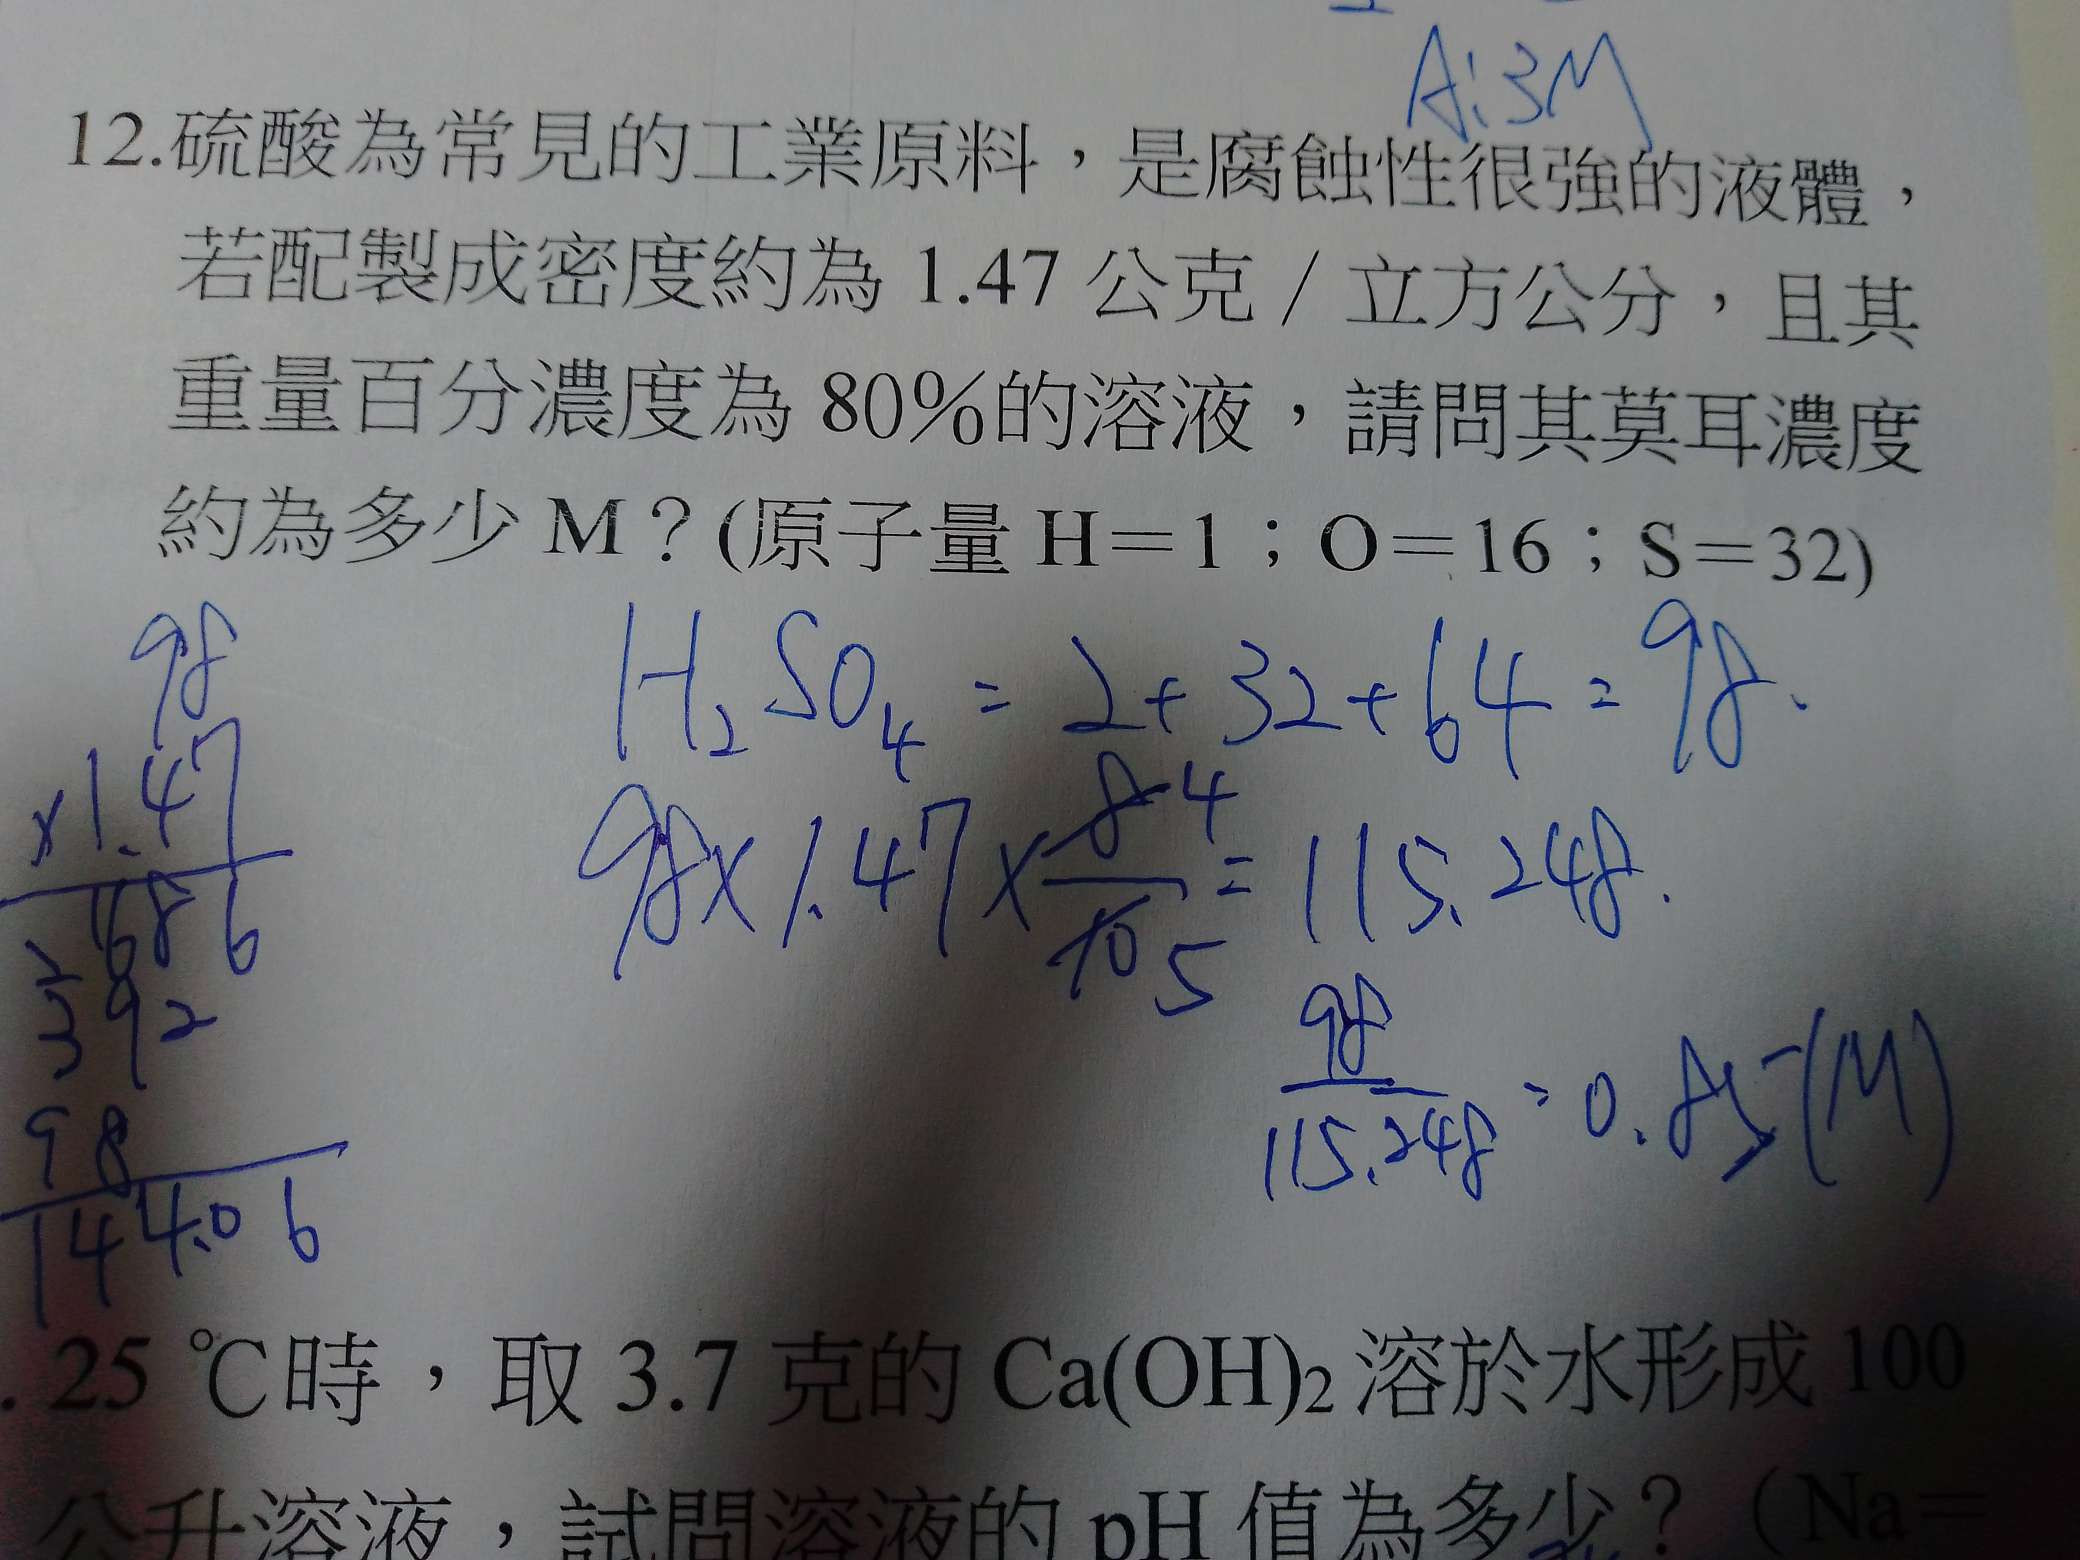 A:3M
12.硫酸為常見的工業原料，是腐蝕性很強的液體，
若配製成密度約為 1.47 公克／立方公分，且其
重量百分濃度為 80%的溶液，請問其莫耳濃度
約為多少 M？(原子量 H＝1；O＝16；S＝32)
H₂SO₄ = 2+32+64=98.
98×1.47×8/10 4/5=115.248.
98/115.248=0.85(M)
98
×1.47
686
392
98
144.06
. 25 ℃時，取 3.7 克的 Ca(OH)₂ 溶於水形成 100
公升溶液，試問溶液的 pH 值為多少？（Na＝